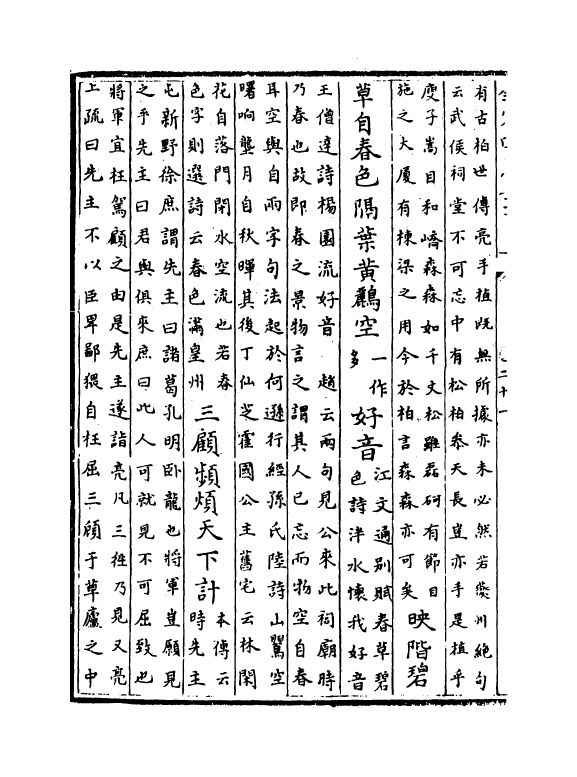 有古柏世傳亮手植既無所據亦未必然若夔州絶句
云武侯祠堂不可忘中有松柏參天長豈亦手是植乎
庾子嵩目和嶠森森如千丈松雖磊砢有節目
施之大廈有棟梁之用今於柏言森森亦可矣
映階碧
草自春色隔葉黄鸝空
一作
多
好音
江文通別賦春草碧
色詩泮水懷我好音
王僧達詩楊園流好音 趙云兩句見公來此祠廟時
乃春也故即春之景物言之謂其人已忘而物空自春
耳空與自兩字句法起於何遜行經孫氏陸詩山鶯空
曙响壟月自秋暉其後丁仙芝霍國公主舊宅云林閑
花自落門閉水空流也若春
色字則選詩云春色滿皇州
三顧頻煩天下計
本傳云
時先主
屯新野徐庶謂先主曰諸葛孔明卧龍也將軍豈願見
之乎先主曰君與俱來庶曰此人可就見不可屈致也
將軍宜枉駕顧之由是先主遂詣亮凡三徃乃見又亮
上疏曰先主不以臣卑鄙猥自枉屈三顧于草廬之中